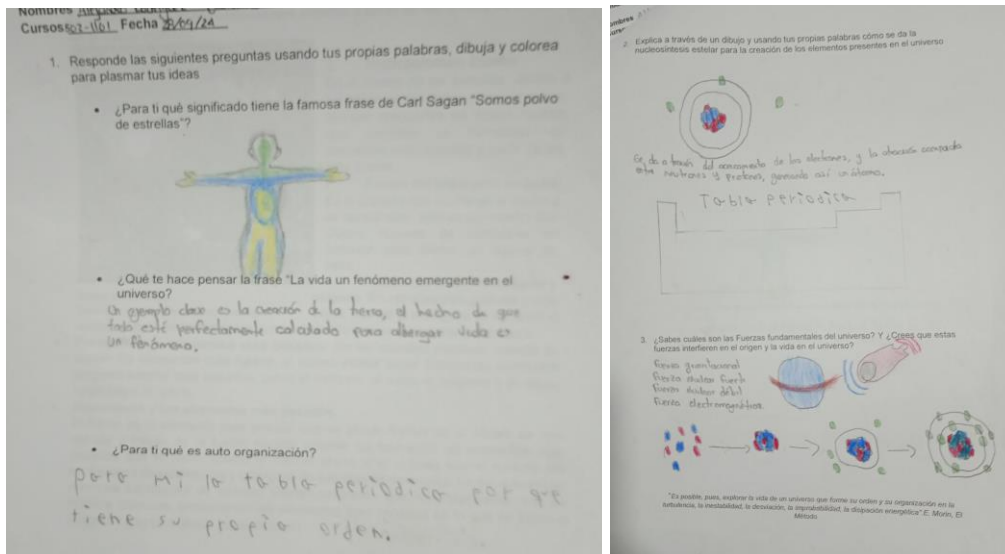 Nombres
Cursos 502-1101 Fecha
1. Responde las siguientes preguntas usando tus propias palabras, dibuja y colorea
para plasmar tus ideas
• ¿Para ti qué significado tiene la famosa frase de Carl Sagan "Somos polvo
de estrellas"?
• ¿Qué te hace pensar la frase "La vida un fenómeno emergente en el
universo?
Un ejemplo claro es la creación de la tierra, el hecho de que
todo esté perfectamente calculado para albergar vida es
un fenómeno.
• ¿Para ti qué es auto organización?
para mi la tabla periodica por que
tiene su propio orden.
2. Explica a través de un dibujo y usando tus propias palabras cómo se da la
nucleosíntesis estelar para la creación de los elementos presentes en el universo
Se da a través del de los electrones, y la atracción
entre neutrones y protones, generando así un átomo.
Tabla periodica
3. ¿Sabes cuáles son las Fuerzas fundamentales del universo? Y ¿Crees que estas
fuerzas interfieren en el origen y la vida en el universo?
Fuerza gravitacional
Fuerza nuclear fuerte
Fuerza nuclear débil
Fuerza electromagnética
"Es posible, pues, explorar la vida de un universo que forme su orden y su organización en la
turbulencia, la inestabilidad, la desviación, la improbabilidad, la disipación energética" E. Morin, El
Método